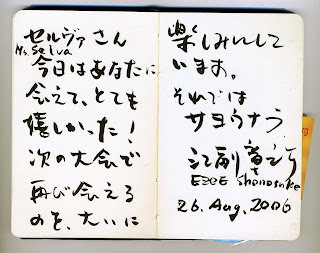 セルヴァさん
Ms. Selva
今日はあなたに
会えて、とても
嬉しかった!
次の大会で
再び会える
のを、大いに
楽しみにして
います。
それでは
サヨウナラ
江副
EZOE Shonosuke
26. Aug, 2006